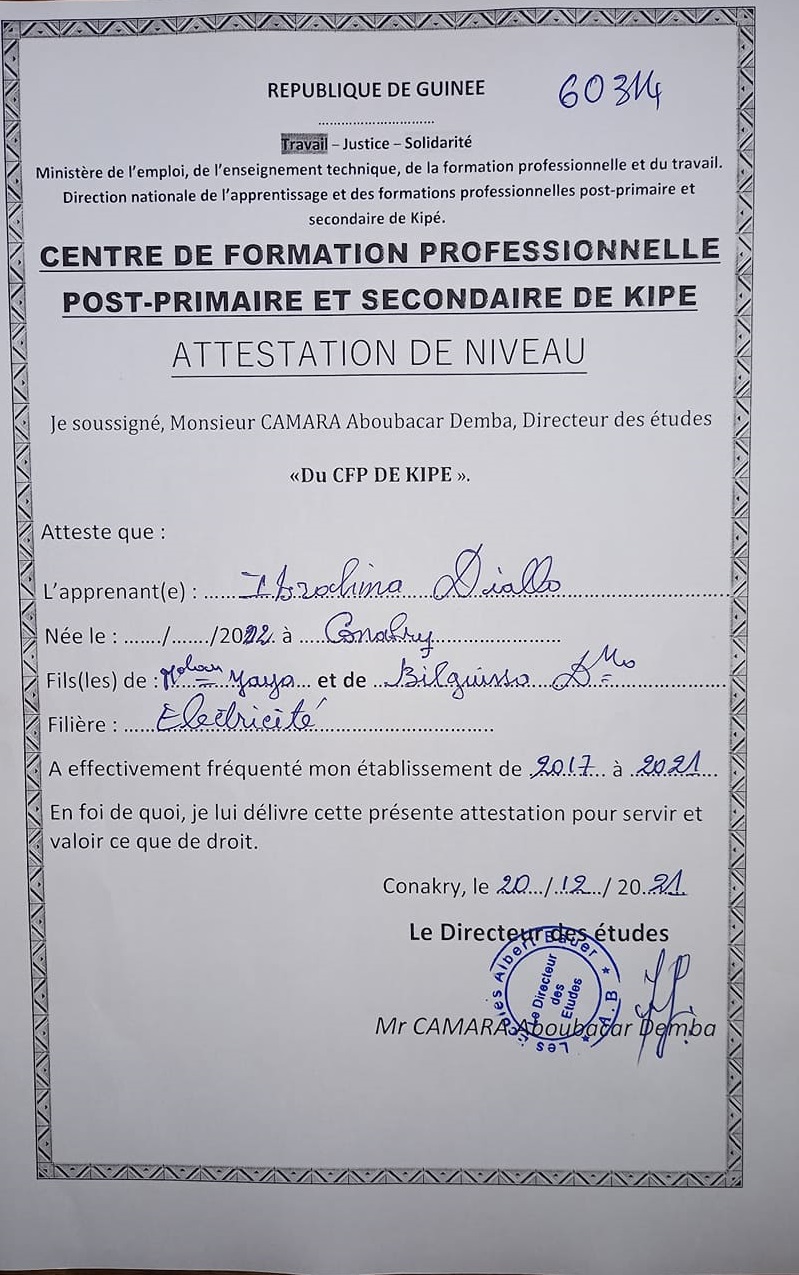 REPUBLIQUE DE GUINEE
60314
..............................
Travail – Justice – Solidarité
Ministère de l'emploi, de l'enseignement technique, de la formation professionnelle et du travail.
Direction nationale de l'apprentissage et des formations professionnelles post-primaire et
secondaire de Kipé.
CENTRE DE FORMATION PROFESSIONNELLE
POST-PRIMAIRE ET SECONDAIRE DE KIPE
ATTESTATION DE NIVEAU
Je soussigné, Monsieur CAMARA Aboubacar Demba, Directeur des études
«Du CFP DE KIPE ».
Atteste que :
L'apprenant(e) : Ibrahima Diallo
Née le : ......./......./2002 à Conakry
Fils(les) de : Yaya et de
Filière : Electricité
A effectivement fréquenté mon établissement de 2017 à 2021
En foi de quoi, je lui délivre cette présente attestation pour servir et
valoir ce que de droit.
Conakry, le 20/12/2021
Le Directeur des études
Les Etudes Albert Bauer * A.B *
Le Directeur
des
Etudes
Mr CAMARA Aboubacar Demba